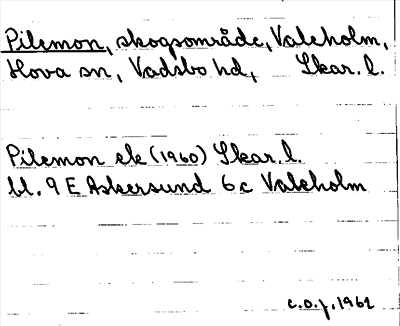 Pilemon, skogsområde, Valeholm,
Hova sn, Vadsbo hd, Skar. l.
Pilemon ek (1960) Skar. l.
bl. 9 E Askersund 6 c Valeholm
C.O.J. 1962